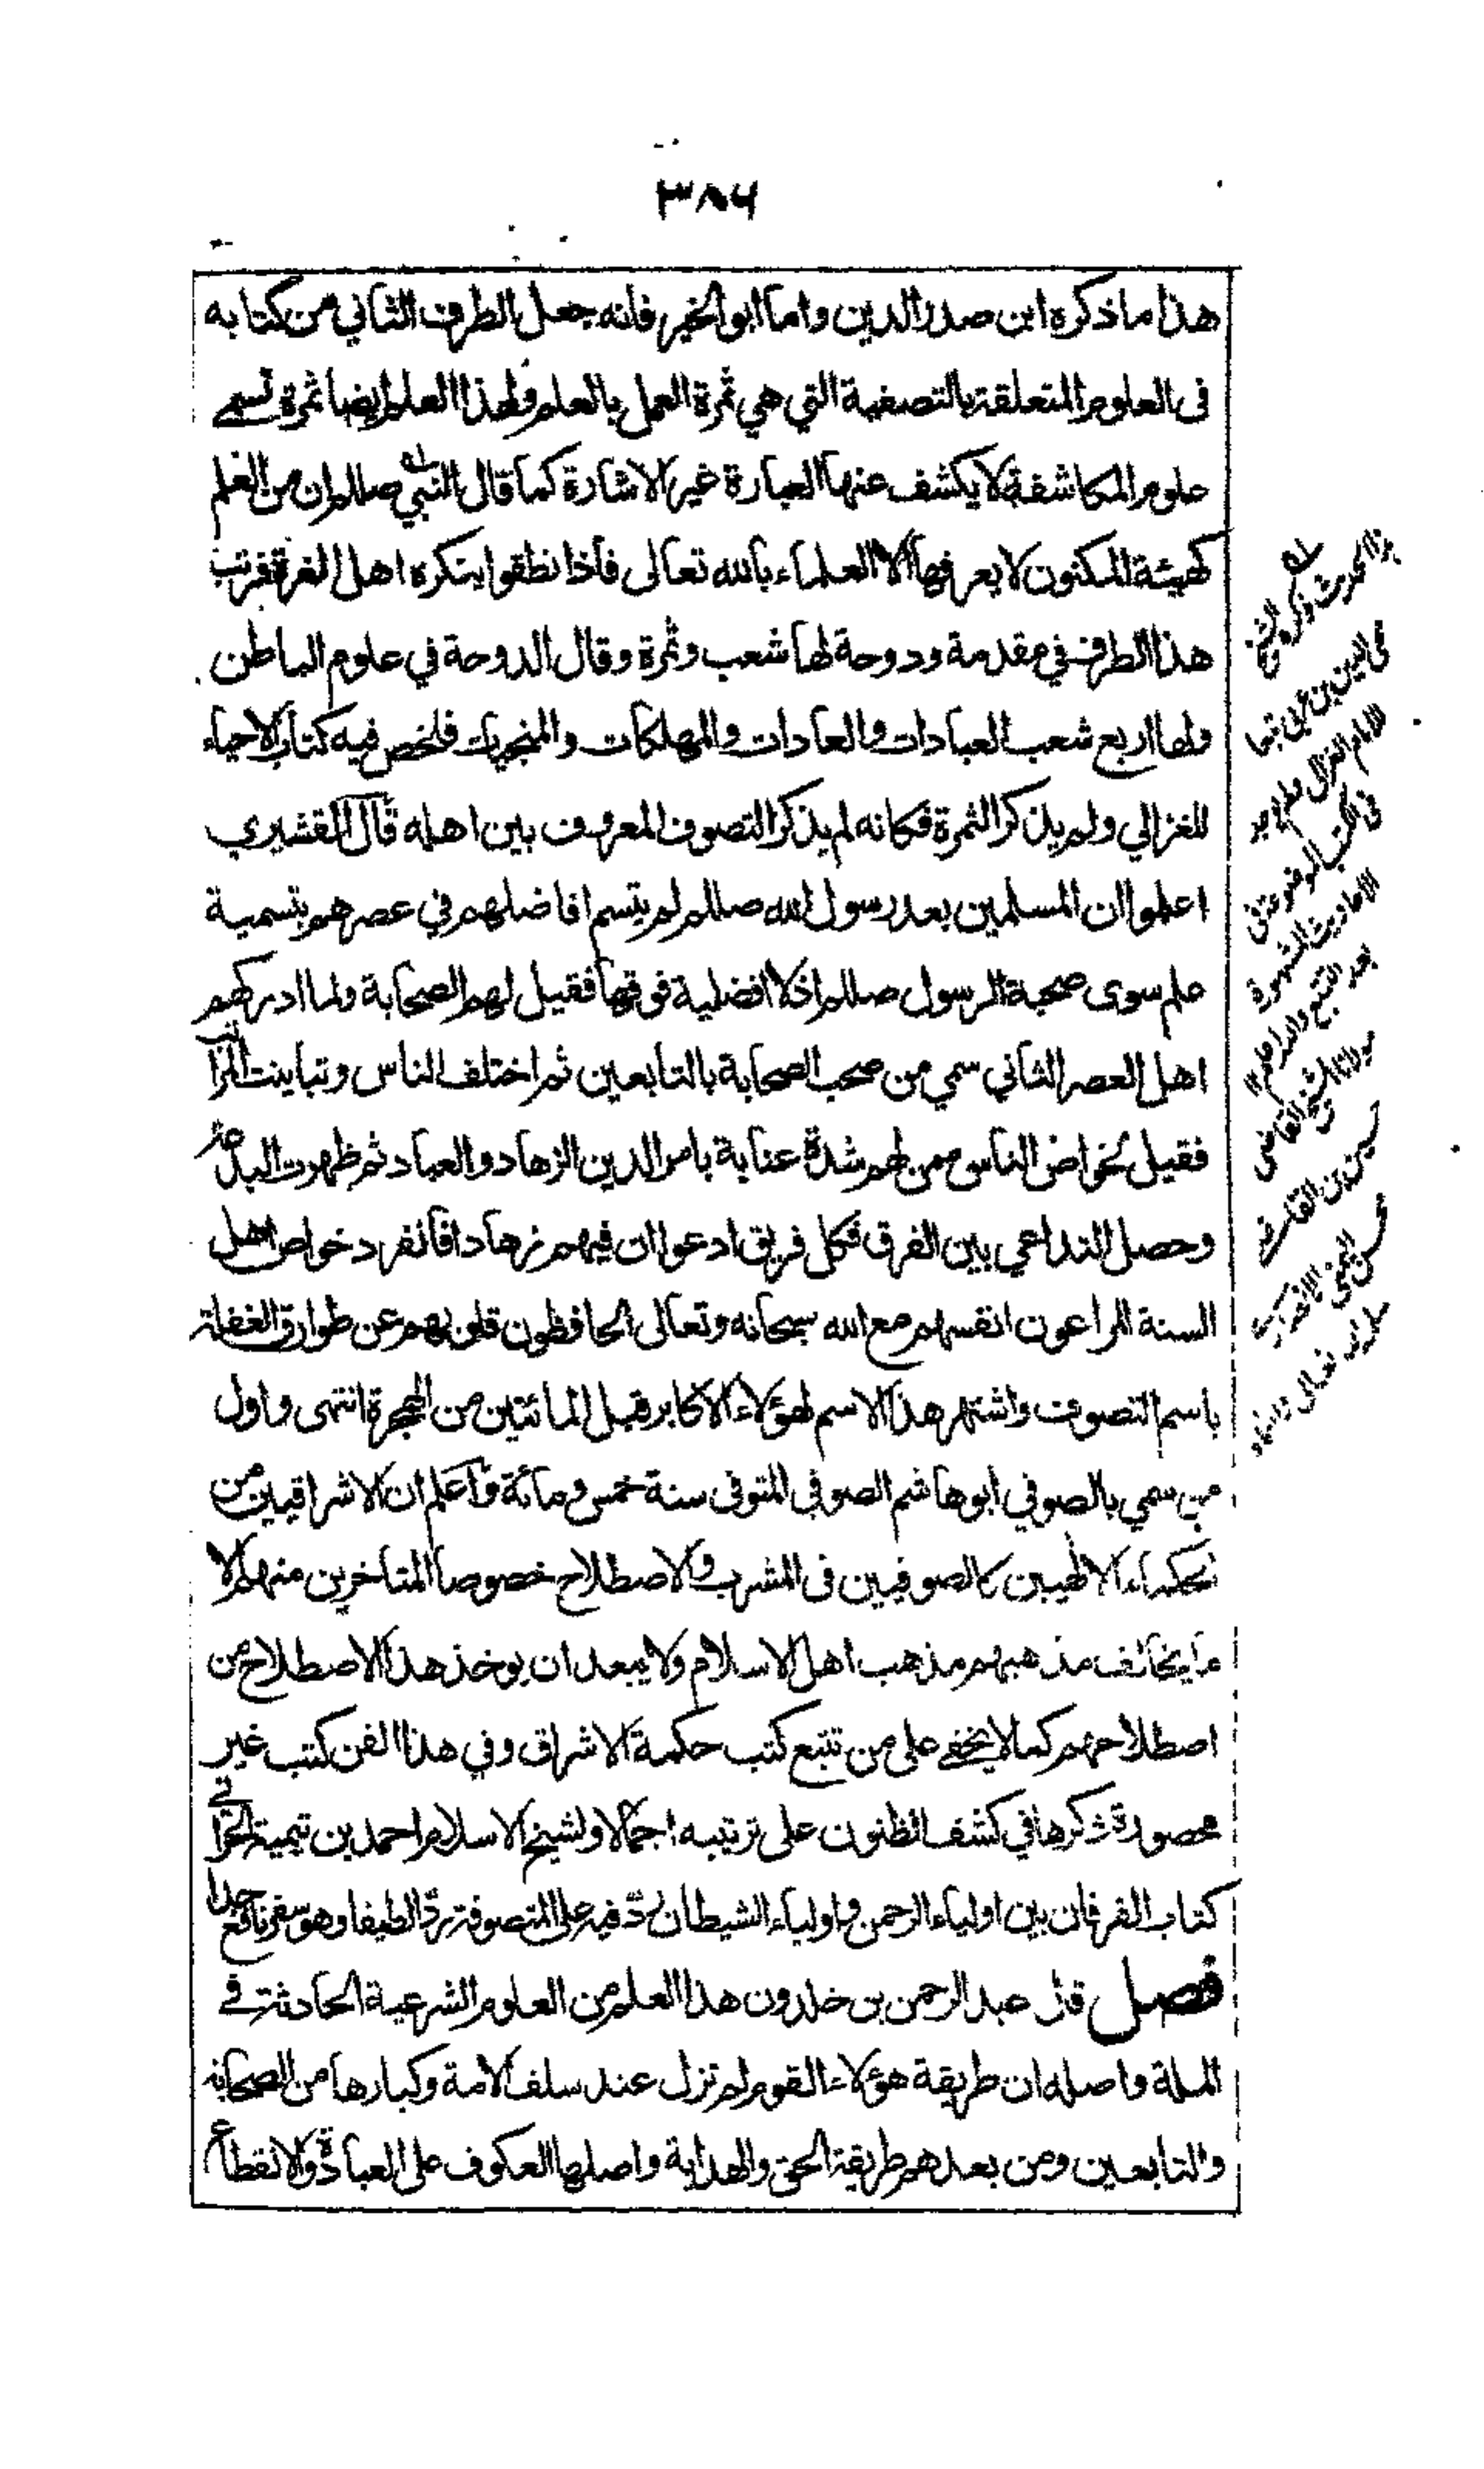 ٣٨٦
هذا ما ذكره ابن صدر الدين واما ابو الخير فانه جعل الطرف الثاني من كتابه
فى العلوم المتعلقة بالتصفية التي هي ثمرة العمل بالعلم ولهذا العلم ايضا ثمرة تسمى
علوم المكاشفة لا يكشف عنها العبارة غير الاشارة كما قال النبي صللم ان من العلم
كهيئة المكنون لا يعرفها الا العلماء بالله تعالى فاذا نطقوا ينكره اهل الغرة فرتب
هذا الطرف في مقدمة ودوحة لها شعب وثمرة وقال الدوحة في علوم الباطن
ولها اربع شعب العبادات والعادات والمهلكات والمنجيات فلخص فيه كتاب الاحياء
للغزالي ولم يذكر الثمرة فكانه لم يذكر التصوف المعروف بين اهله قال القشيري
اعلموا ان المسلمين بعد رسول الله صللم لم يتسم افاضلهم في عصرهم بتسمية
علم سوى صحبة الرسول صللم اذ لا افضلية فوقها فقيل لهم الصحابة ولما ادركهم
اهل العصر الثاني سمي من صحب الصحابة بالتابعين ثم اختلف الناس وتباينت المراتب
فقيل لخواص الناس ممن لهم شدة عناية بامر الدين الزهاد والعباد ثم ظهرت البدعة
وحصل التداعي بين الفرق فكل فريق ادعوا ان فيهم زهادا فانفرد خواص اهل
السنة المراعون انفسهم مع الله سبحانه وتعالى الحافظون قلوبهم عن طوارق الغفلة
باسم التصوف واشتهر هذا الاسم لهؤلاء الاكابر قبل المائتين من الهجرة انتهى واول
من سمي بالصوفي ابو هاشم الصوفي المتوفى سنة خمس ومائة واعلم ان الاشراقيين من
الحكماء الالهيين كالصوفيين فى المشرب والاصطلاح خصوصا المتاخرين منهم الا
ما يخالف مذهبهم مذهب اهل الاسلام ولا يبعد ان يوخذ هذا الاصطلاح من
اصطلاحهم كما لا يخفى على من تتبع كتب حكمة الاشراق وفي هذا الفن كتب غير
محصورة ذكرها في كشف الظنون على ترتيبه اجمالا ولشيخ الاسلام احمد بن تيمية الحراني
كتاب الفرقان بين اولياء الرحمن واولياء الشيطان رد فيه على المتصوفة ردا لطيفا وهو سفر نافع جدا
فصل قال عبد الرحمن بن خلدون هذا العلم من العلوم الشرعية الحادثة في
الملة واصله ان طريقة هؤلاء القوم لم تزل عند سلف الامة وكبارها من الصحابة
والتابعين ومن بعدهم طريقة الحق والهداية واصلها العكوف على العبادة والانقطاع
هذا الحديث ذكره الشيخ
محي الدين بن عربي
الامام الغزالي
الاحاديث المشهورة
بعد التتبع
مولانا
حسين بن
تعالى